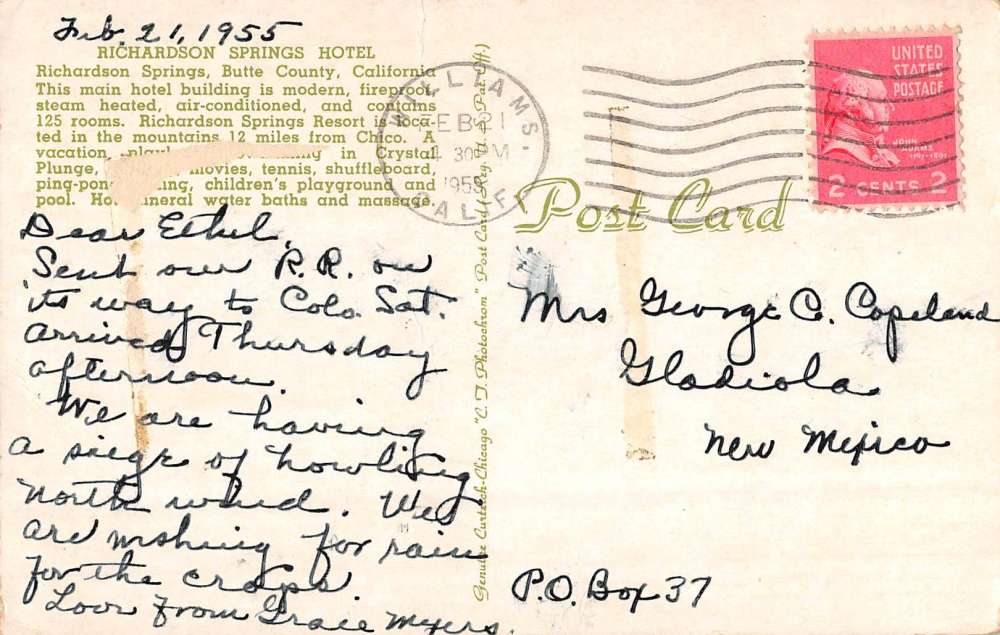 Feb. 21, 1955
RICHARDSON SPRINGS HOTEL
Richardson Springs, Butte County, California
This main hotel building is modern, fireproof
steam heated, air-conditioned, and contains
125 rooms. Richardson Springs Resort is loca-
ted in the mountains 12 miles from Chico. A
vacation in Crystal
Plunge, movies, tennis, shuffleboard,
ping-pong children's playground and
pool. Hot mineral water baths and massage.
Dear Ethel,
Sent our R.R. on
its way to Colo. Sat.
arrived Thursday
afternoon.
We are having
a siege of howling
north wind. We
are wishing for rain
for the crops.
Love from Grace Myers.
Genuine Curteich-Chicago "C. T. Photochrom" Post Card (Reg. U. S. Pat. Off.)
WILLIAMS.
FEB 21
4 30 PM
1955
CALIF.
UNITED
STATES
POSTAGE
JOHN
ADAMS
2 CENTS 2
Post Card
Mrs George C. Copeland
Gladiola
New Mexico
P.O. Box 37